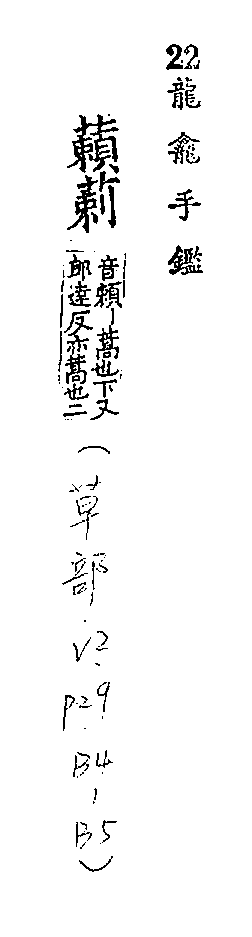 22龍龕手鑑
藾䓶
音頼｜蒿也下又
郎達反亦蒿也二
(草部.V2.
P29.
B4,
B5)